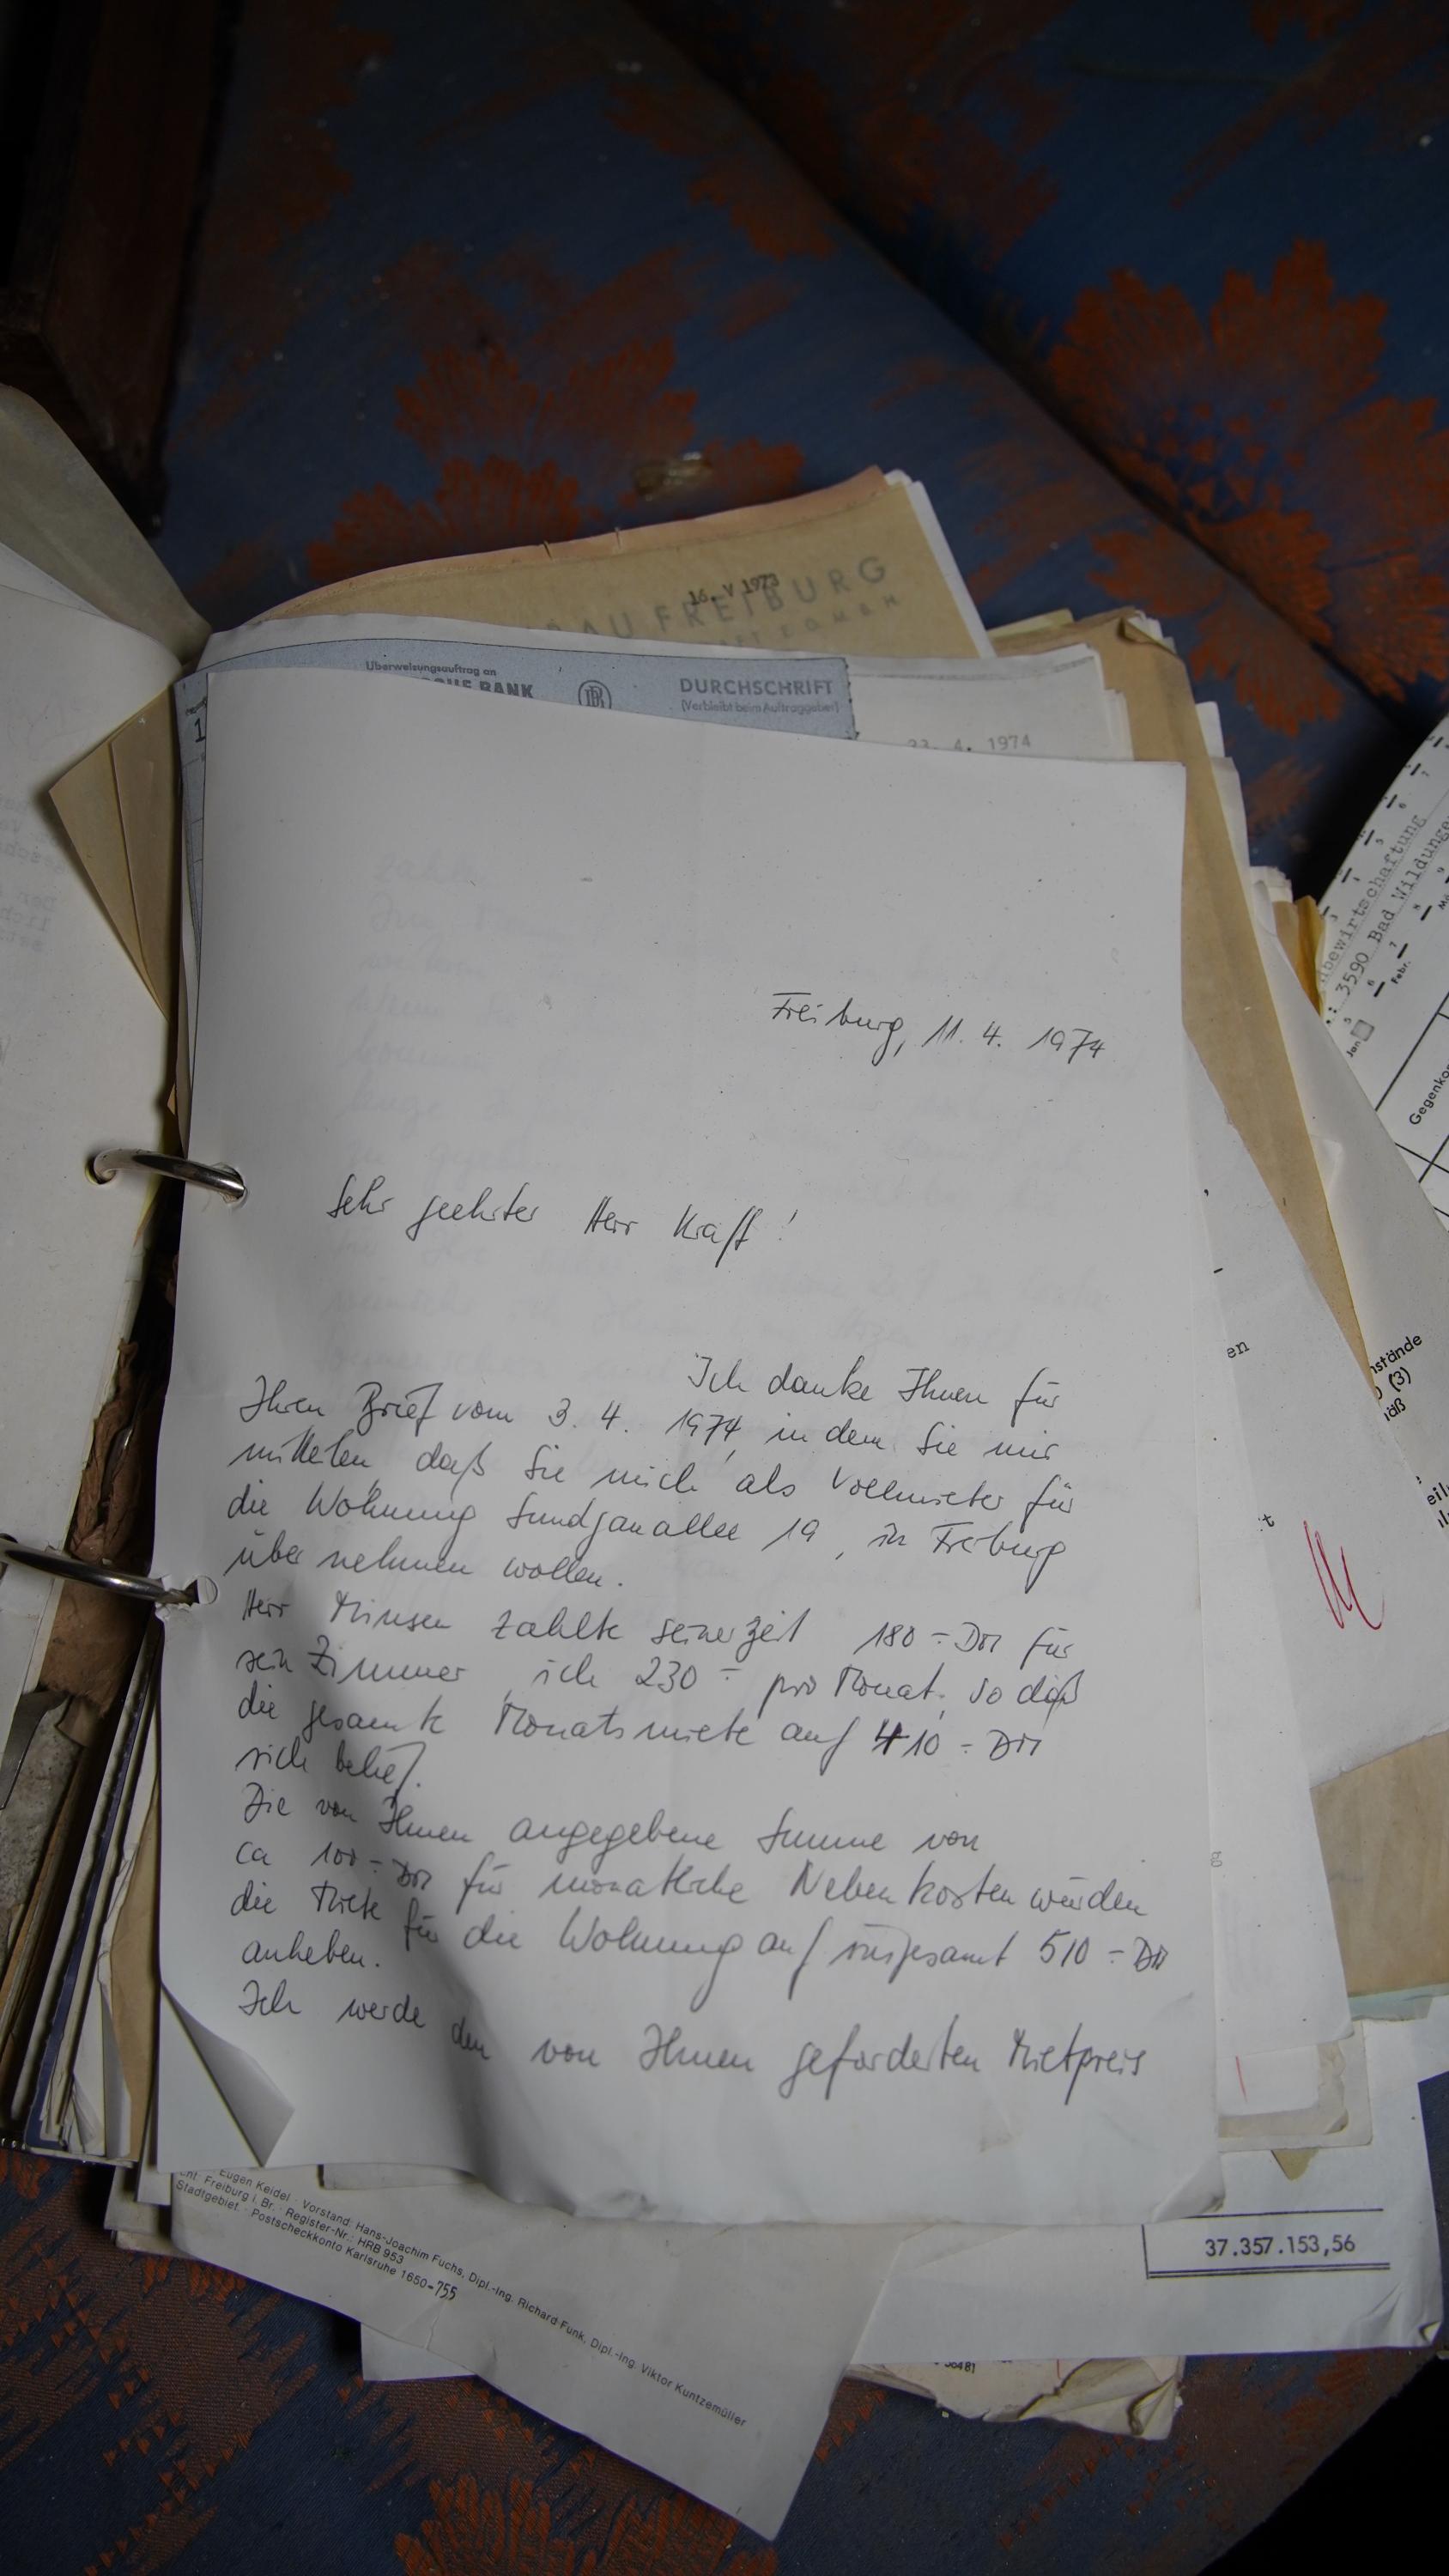 16. V 1973
BAU FREIBURG
Überweisungsauftrag an
BANK
DURCHSCHRIFT
(Verbleibt beim Auftraggeber)
23. 4. 1974
Freiburg, 11. 4. 1974
Sehr geehrter Herr Kraft!
Ich danke Ihnen für
Ihren Brief vom 3. 4. 1974, in dem Sie mir
mitteilen, daß Sie mich als Vollmieter für
die Wohnung Sundgauallee 19, in Freiburg
übernehmen wollen.
Herr Minsen zahlte seinerzeit 180.- DM für
sein Zimmer, ich 230.- pro Monat, so daß
die gesamte Monatsmiete auf 410.- DM
sich belief.
Die von Ihnen angegebene Summe von
ca 100.- DM für monatliche Nebenkosten würden
die Miete für die Wohnung auf insgesamt 510.- DM
anheben.
Ich werde den von Ihnen geforderten Mietpreis
bewirtschaftung
3590 Bad Wildungen
Febr.
Jan
Gegenko
en
stände
(3)
äß
37.357.153,56
Eugen Keidel · Vorstand: Hans-Joachim Fuchs, Dipl.-Ing. Richard Funk, Dipl.-Ing. Viktor Kuntzemüller
Freiburg i. Br. · Register-Nr.: HRB 953
Stadtgebiet. · Postscheckkonto Karlsruhe 1650-755